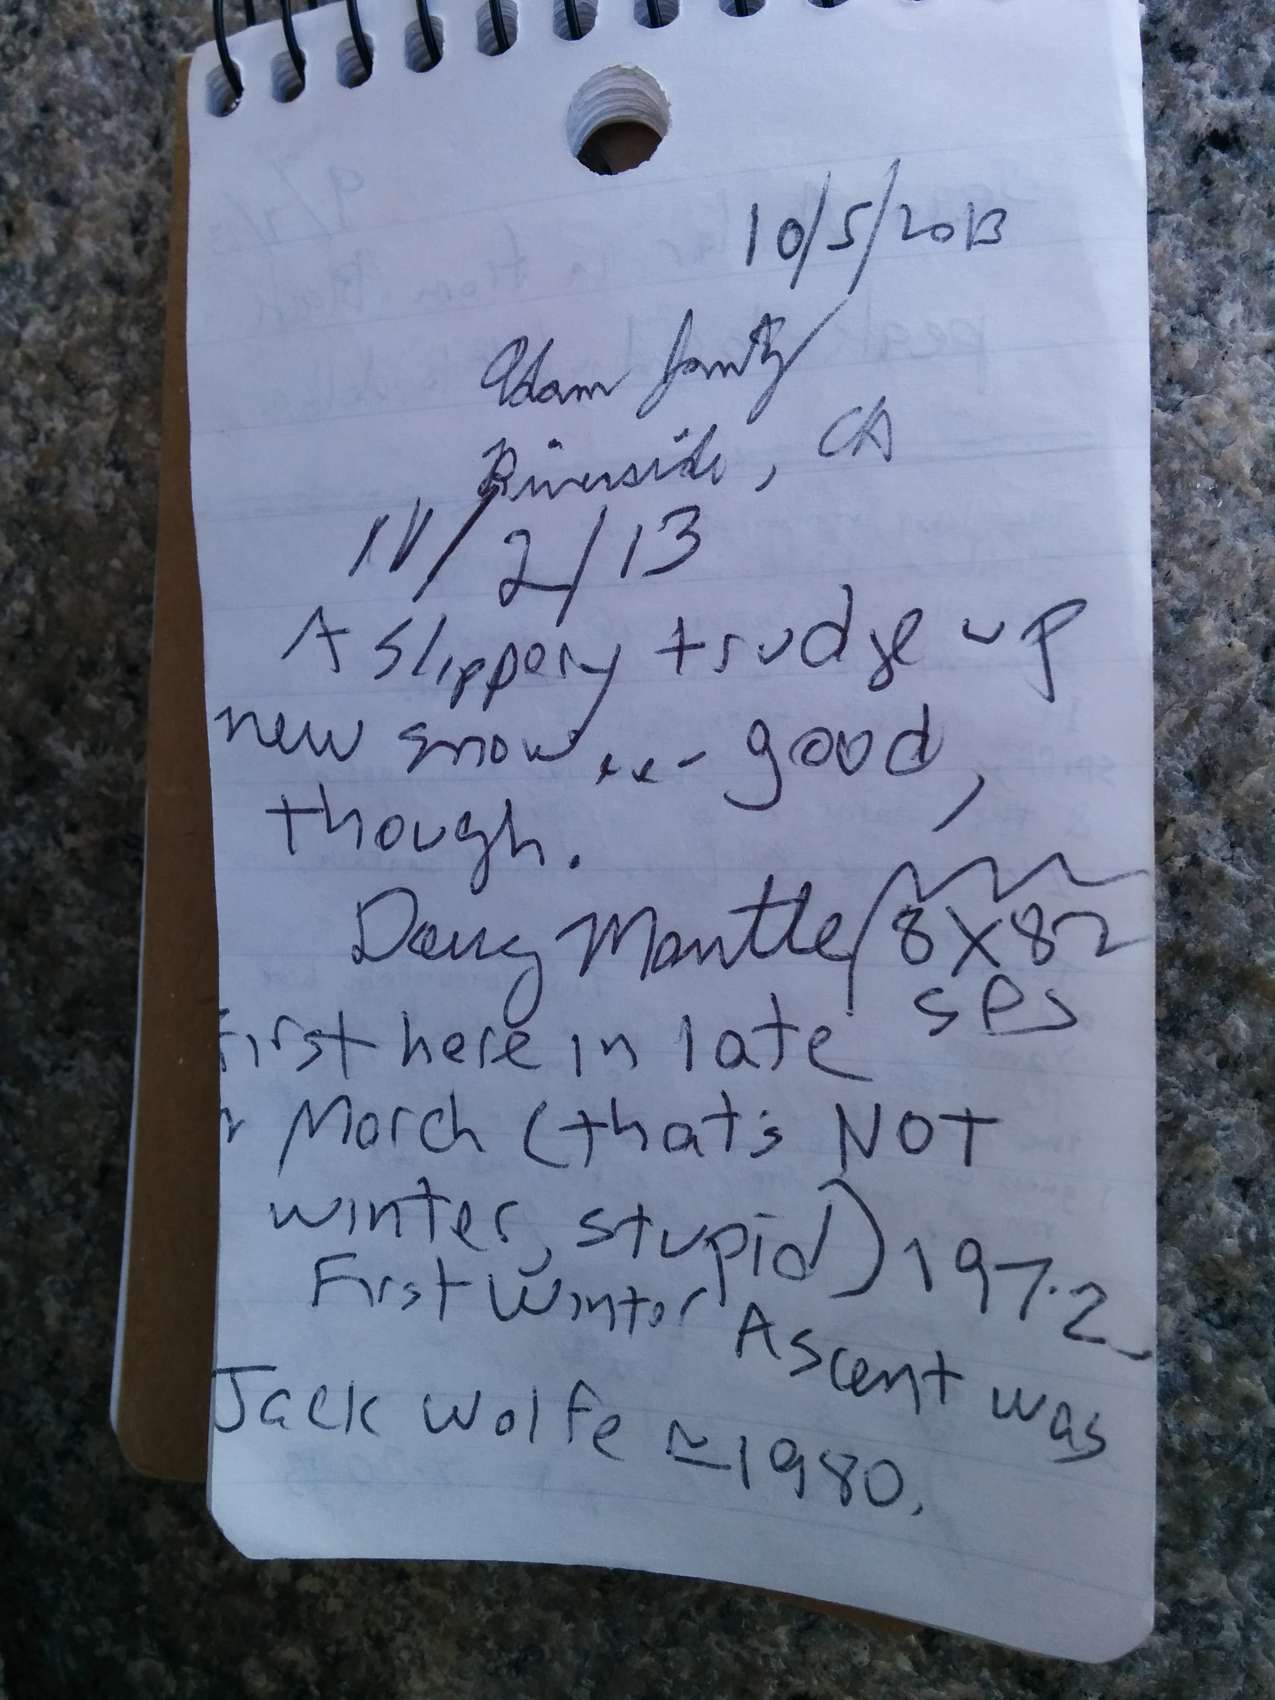 10/5/2013
Adam Jantz
Riverside, CA
11/2/13
A slippery trudge up
new snow... good,
though.
Doug Mantle/8X82
SPS
First here in late
March (that's NOT
winter, stupid) 1972
First Winter Ascent was
Jack Wolfe ≈1980.